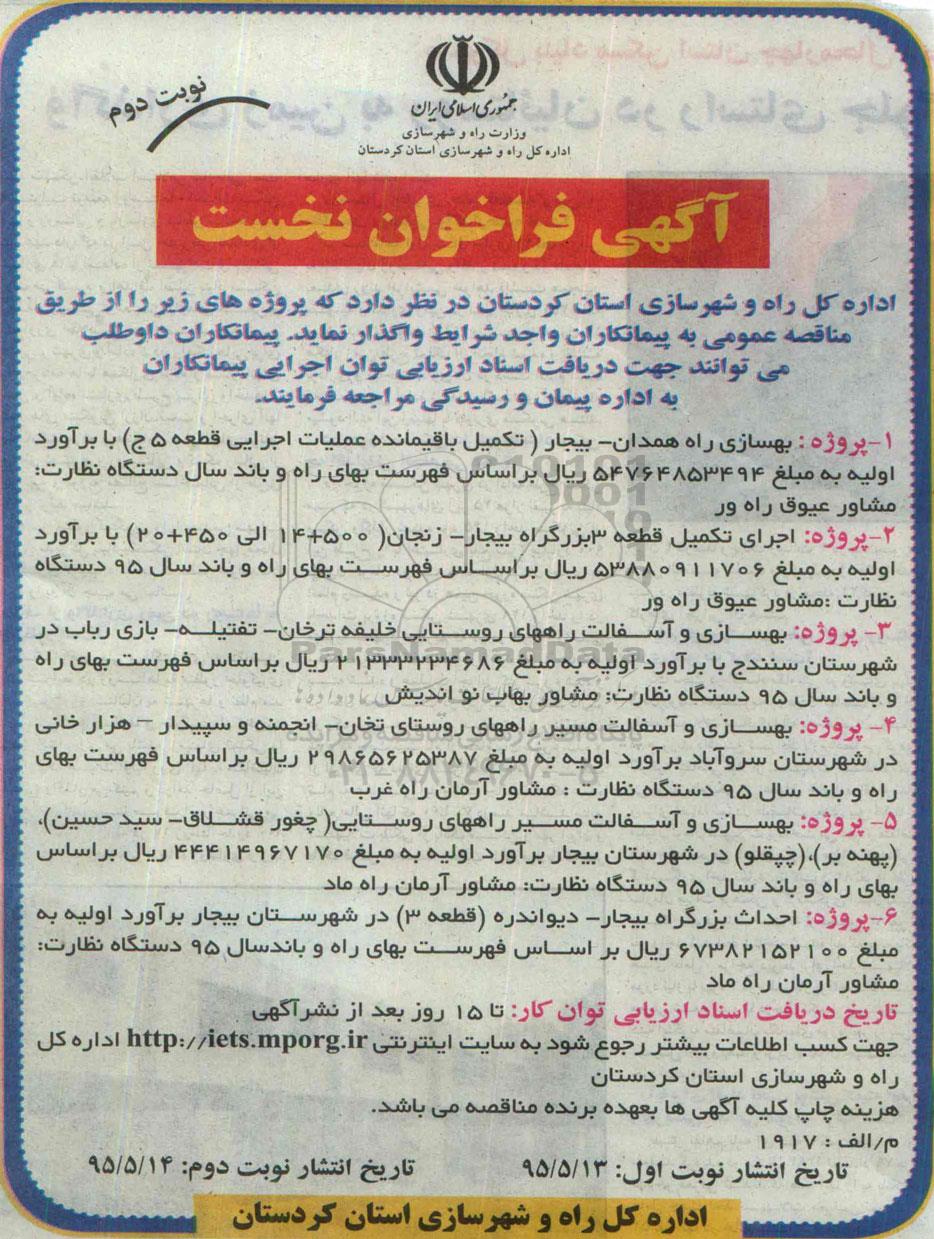 نوبت دوم
جمهوری اسلامی ایران
وزارت راه و شهرسازی
اداره کل راه و شهرسازی استان کردستان
آگهی فراخوان نخست
اداره کل راه و شهرسازی استان کردستان در نظر دارد که پروژه های زیر را از طریق
مناقصه عمومی به پیمانکاران واجد شرایط واگذار نماید. پیمانکاران داوطلب
می توانند جهت دریافت اسناد ارزیابی توان اجرایی پیمانکاران
به اداره پیمان و رسیدگی مراجعه فرمایند.
۱-پروژه : بهسازی راه همدان- بیجار ( تکمیل باقیمانده عملیات اجرایی قطعه ۵ ج) با برآورد
اولیه به مبلغ ۵۴۷۶۴۸۵۳۴۹۴ ریال براساس فهرست بهای راه و باند سال دستگاه نظارت:
مشاور عیوق راه ور
۲-پروژه: اجرای تکمیل قطعه ۳بزرگراه بیجار- زنجان( ۵۰۰+۱۴ الی ۴۵۰+۲۰) با برآورد
اولیه به مبلغ ۵۳۸۸۰۹۱۱۷۰۶ ریال براساس فهرست بهای راه و باند سال ۹۵ دستگاه
نظارت :مشاور عیوق راه ور
۳- پروژه: بهسازی و آسفالت راههای روستایی خلیفه ترخان- تفتیله- بازی رباب در
شهرستان سنندج با برآورد اولیه به مبلغ ۲۱۳۳۳۲۳۴۶۸۶ ریال براساس فهرست بهای راه
و باند سال ۹۵ دستگاه نظارت: مشاور بهاب نو اندیش
۴- پروژه: بهسازی و آسفالت مسیر راههای روستای تخان- انجمنه و سپیدار – هزار خانی
در شهرستان سروآباد برآورد اولیه به مبلغ ۲۹۸۶۵۶۲۵۳۸۷ ریال براساس فهرست بهای
راه و باند سال ۹۵ دستگاه نظارت : مشاور آرمان راه غرب
۵- پروژه: بهسازی و آسفالت مسیر راههای روستایی( چغور قشلاق- سید حسین)،
(پهنه بر)،(چپقلو) در شهرستان بیجار برآورد اولیه به مبلغ ۴۴۴۱۴۹۶۷۱۷۰ ریال براساس
بهای راه و باند سال ۹۵ دستگاه نظارت: مشاور آرمان راه ماد
۶-پروژه: احداث بزرگراه بیجار- دیواندره (قطعه ۳) در شهرستان بیجار برآورد اولیه به
مبلغ ۶۷۳۸۲۱۵۲۱۰۰ ریال بر اساس فهرست بهای راه و باندسال ۹۵ دستگاه نظارت:
مشاور آرمان راه ماد
تاریخ دریافت اسناد ارزیابی توان کار: تا ۱۵ روز بعد از نشرآگهی
جهت کسب اطلاعات بیشتر رجوع شود به سایت اینترنتی http://iets.mporg.ir اداره کل
راه و شهرسازی استان کردستان
هزینه چاپ کلیه آگهی ها بعهده برنده مناقصه می باشد.
م/الف : ۱۹۱۷
تاریخ انتشار نوبت اول: ۹۵/۵/۱۳ تاریخ انتشار نوبت دوم: ۹۵/۵/۱۴
اداره کل راه و شهرسازی استان کردستان
ParsNamadData